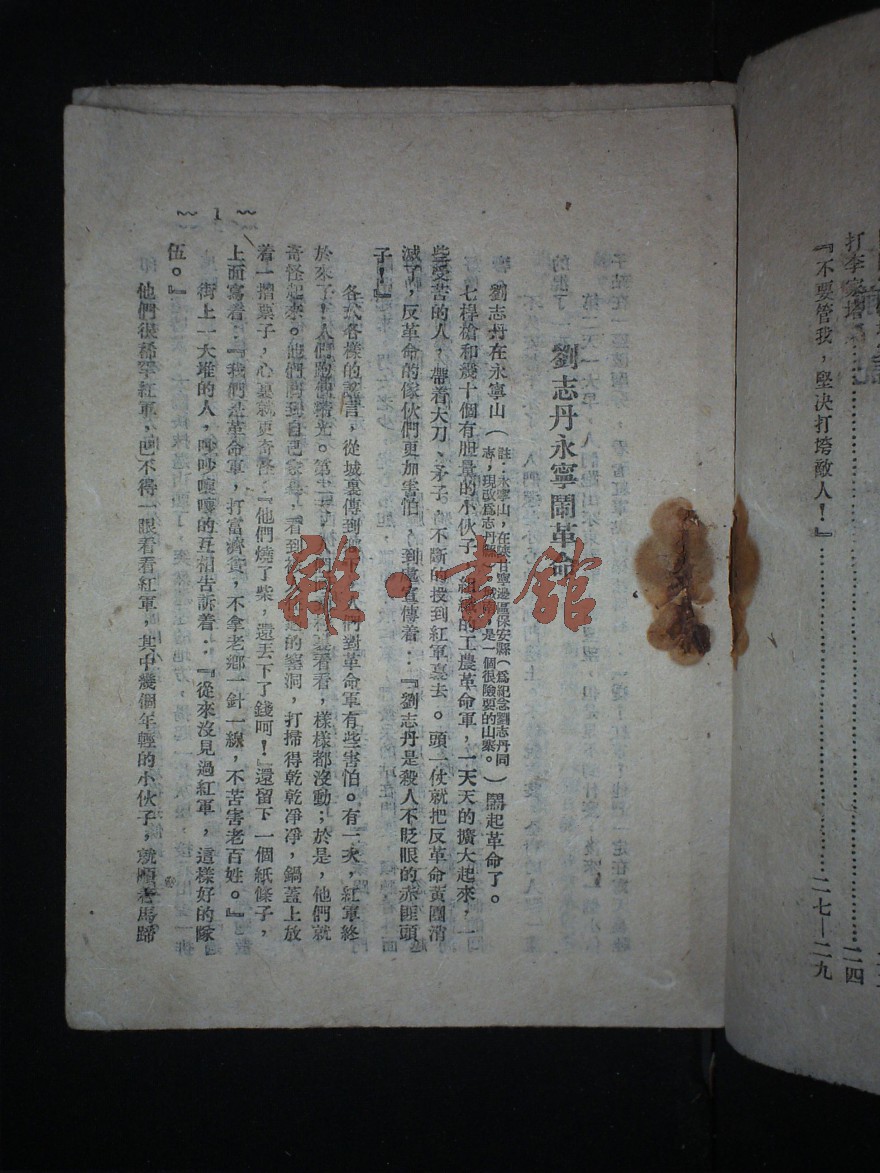 打李家塔
二四
『不要管我，堅決打垮敵人！』
二七—二九
劉志丹永寧鬧革命
劉志丹在永寧山（註：永寧山，在陝甘寧邊區保安縣（爲紀念劉志丹同
志，現改爲志丹縣）是一個很險要的山寨。）鬧起革命了。
七桿槍和幾十個有胆量的小伙子，組織的工農革命軍，一天天的擴大起來，一
些受苦的人，帶着大刀、矛子，不斷的投到紅軍裏去。頭一仗就把反革命黃團消
滅了，反革命的傢伙們更加害怕，到處宣傳着：『劉志丹是殺人不眨眼的赤匪頭
子！』
各式各樣的謠言，從城裏傳到鄉，人們對革命軍有些害怕。有一天，紅軍終
於來了，人們跑個精光。第二看看，樣樣都沒動；於是，他們就
奇怪起來。他們到自己家裏，看到的窰洞，打掃得乾乾凈凈，鍋蓋上放
着一摺票子，心裏就更奇怪：『他們燒了柴，還丟下了錢呵！』還留下一個紙條子，
上面寫着：『我們是革命軍，打富濟貧，不拿老鄉一針一線，不苦害老百姓。』
街上一大堆的人，吵吵嚷嚷的互相告訴着：『從來沒見過紅軍，這樣好的隊
伍。』
他們很稀罕紅軍，巴不得一眼看看紅軍，其中幾個年輕的小伙子，就順着馬蹄
1
雜·書館